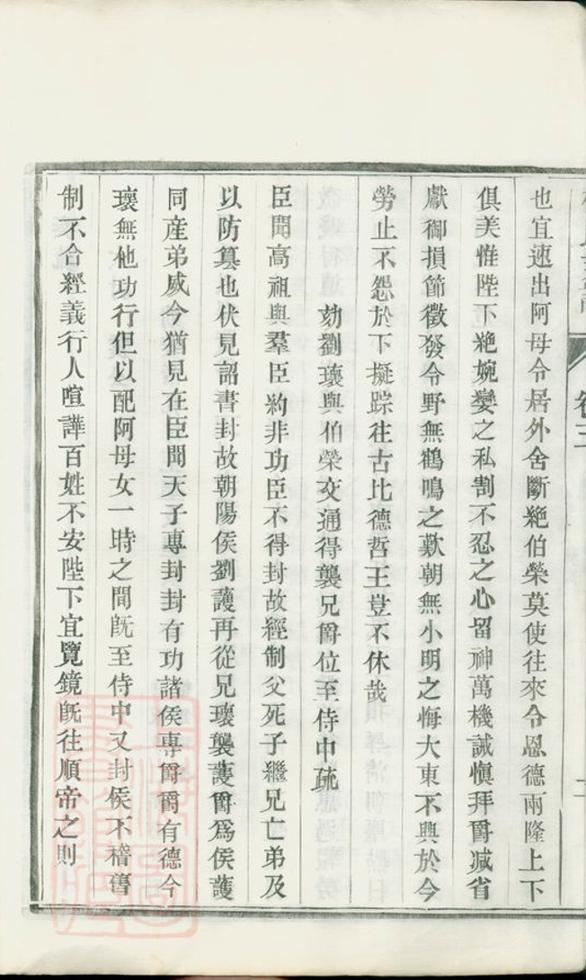 卷三
也宜速出阿母令居外舍斷絶伯榮莫使往來令恩德兩隆上下
俱美惟陛下絶婉孌之私割不忍之心留神萬機誡愼拜爵減省
獻御損節徵發令野無鶴鳴之歎朝無小明之悔大東不興於今
勞止不怨於下擬踪往古比德哲王豈不休哉
劾劉瓌與伯榮交通得襲兄爵位至侍中疏
臣聞高祖與羣臣約非功臣不得封故經制父死子繼兄亡弟及
以防簒也伏見詔書封故朝陽侯劉護再從兄瓌襲護爵爲侯護
同産弟威今猶見在臣聞天子專封封有功諸侯專爵爵有德今
瓌無他功行但以配阿母女一時之間旣至侍中又封侯不稽舊
制不合經義行人喧譁百姓不安陛下宜覽鏡旣往順帝之則